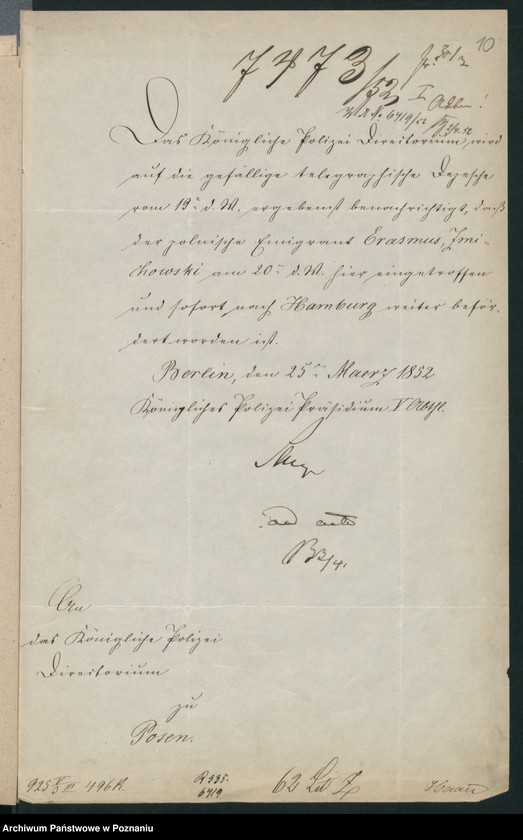 10
7473/52
I
6419/52
Das Königliche Polizei Directorium wird
auf die gefällige telegraphische Depesche
vom 19ten d. M. ergebenst benachrichtigt, daß
der polnische Emigrant Erasmus Zmi-
chowski am 20ten d. M. hier eingetroffen
und sofort nach Hamburg weiter beför-
dert worden ist.
Berlin, den 25ten Maerz 1852
Königliches Polizei Präsidium V Abthl.
ad acta
An
das Königliche Polizei
Directorium
zu
Posen.
925 III 496R.
R 335.
6419
62 Lit Z
Archiwum Państwowe w Poznaniu